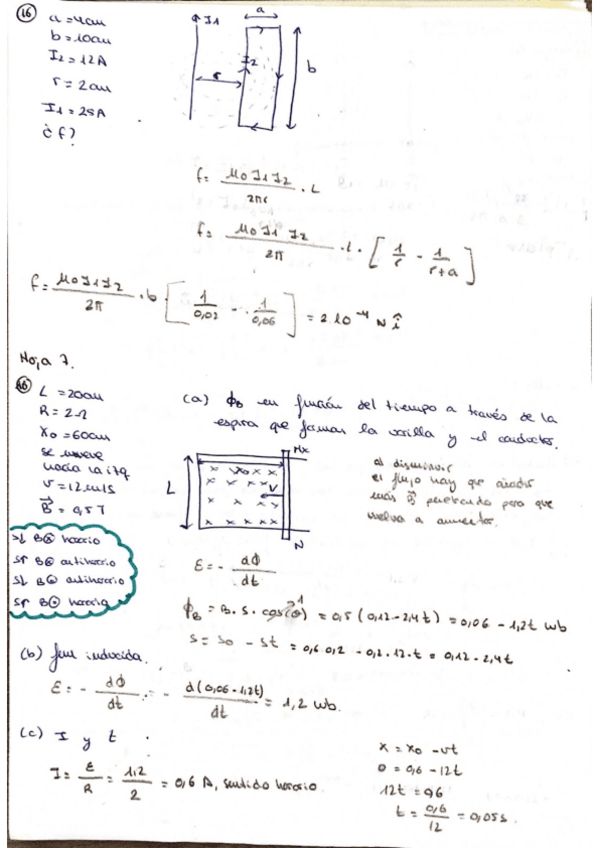 16
a = 4cm
b = 10cm
I2 = 12A
r = 2cm
I1 = 25A
¿f?
I1
a
I2
r
b
f = μ0 I1 I2 / 2πr · L
f = μ0 I1 I2 / 2π · L · [1/r - 1/r+a]
f = μ0 I1 I2 / 2π · b · [1/0,02 - 1/0,06] = 2·10^-4 N î
Hoja 7.
16
L = 20cm
R = 2Ω
X0 = 60cm
se mueve
hacia la izq
v = 12 m/s
B = 0,5T
S↓ B⊗ horario
S↑ B⊗ antihorario
S↓ B⊙ antihorario
S↑ B⊙ horario
(a) ΦB en función del tiempo a través de la
espira que forman la varilla y el conductor.
L
x x0 x x x
v
N
al disminuir
el flujo hay que añadir
más B penetrando para que
vuelva a aumentar.
ε = - dΦ/dt
ΦB = B · S · cos(0)^1 = 0,5 (0,12 - 2,4t) = 0,06 - 1,2t wb
S = S0 - St = 0,6·0,2 - 0,2·12·t = 0,12 - 2,4t
(b) fem inducida.
ε = - dΦ/dt = - d(0,06 - 1,2t)/dt = 1,2 wb.
(c) I y t
I = ε/R = 1,2/2 = 0,6 A, sentido horario.
x = x0 - vt
0 = 0,6 - 12t
12t = 0,6
t = 0,6/12 = 0,05s.